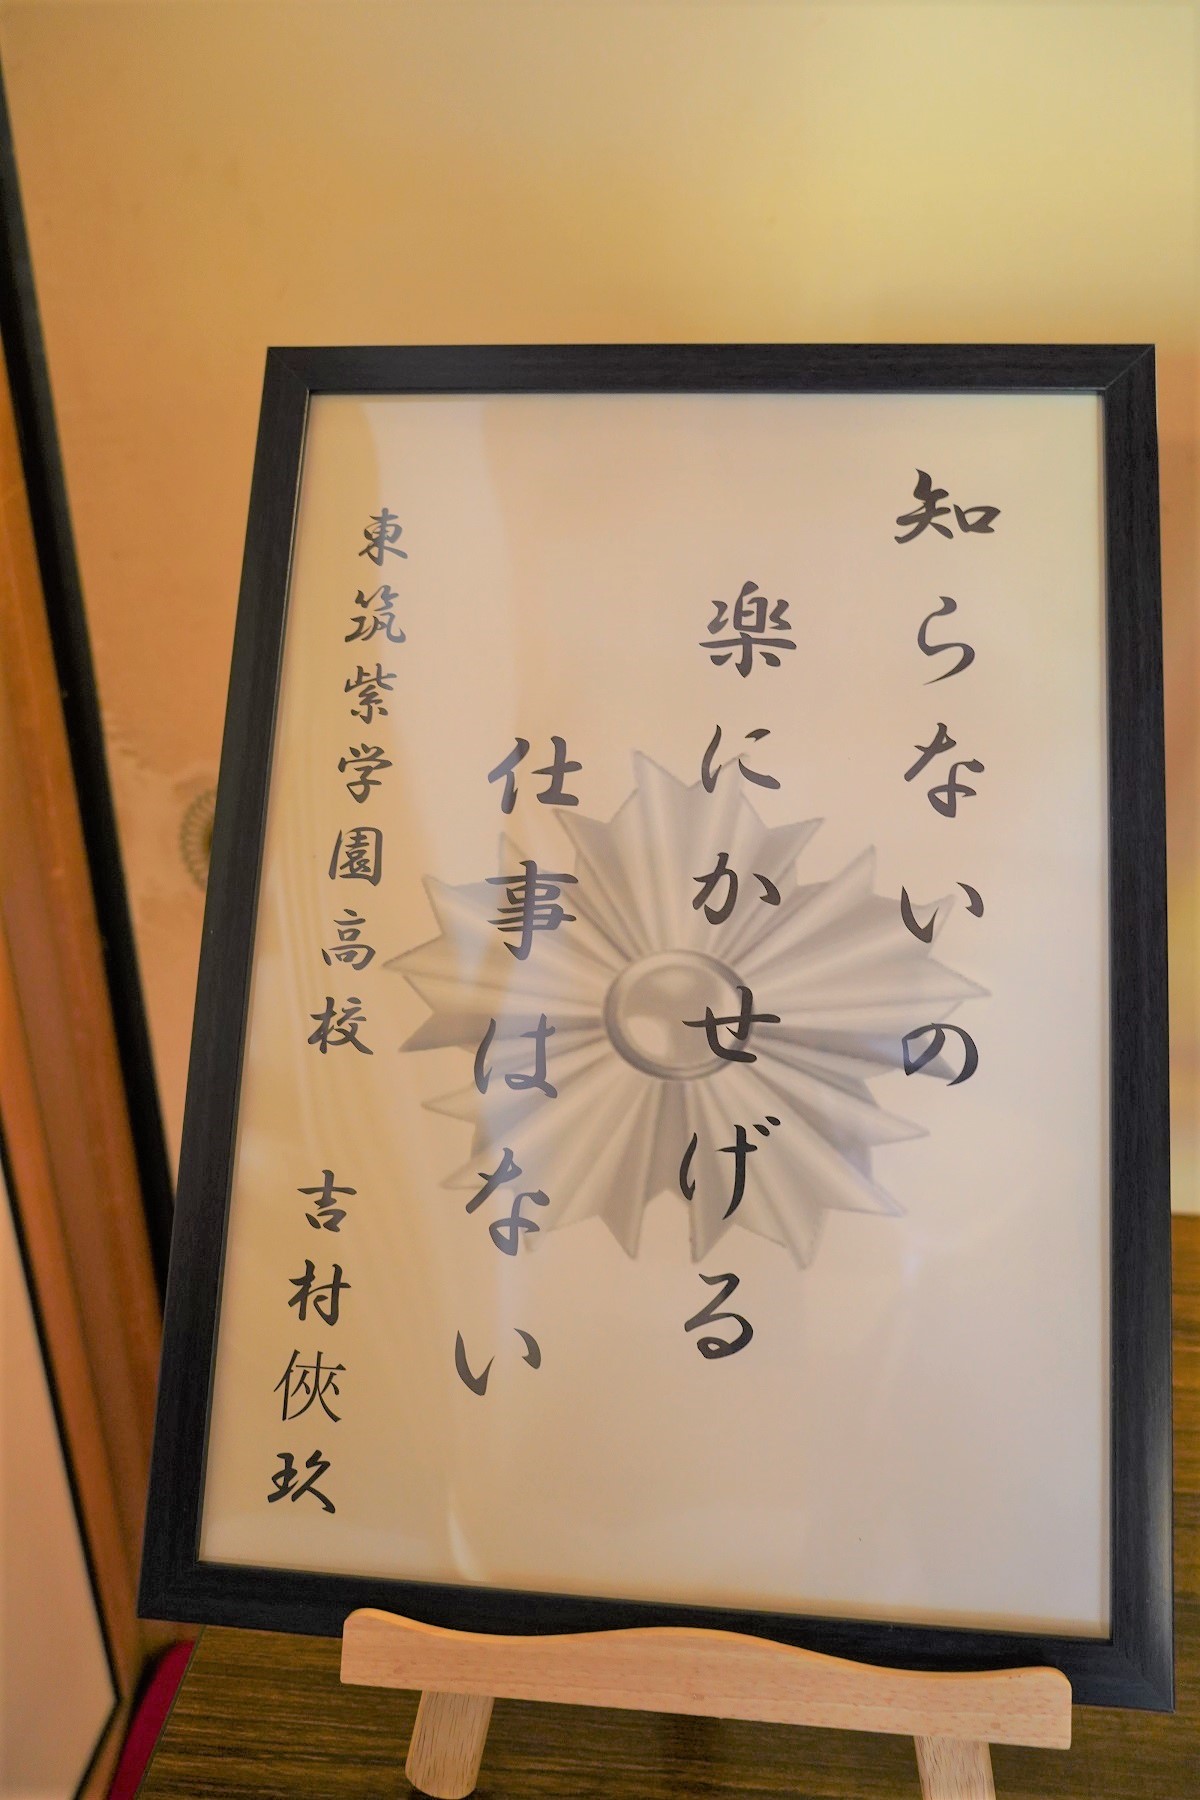 知らないの
楽にかせげる
仕事はない
東筑紫学園高校 吉村俠玖